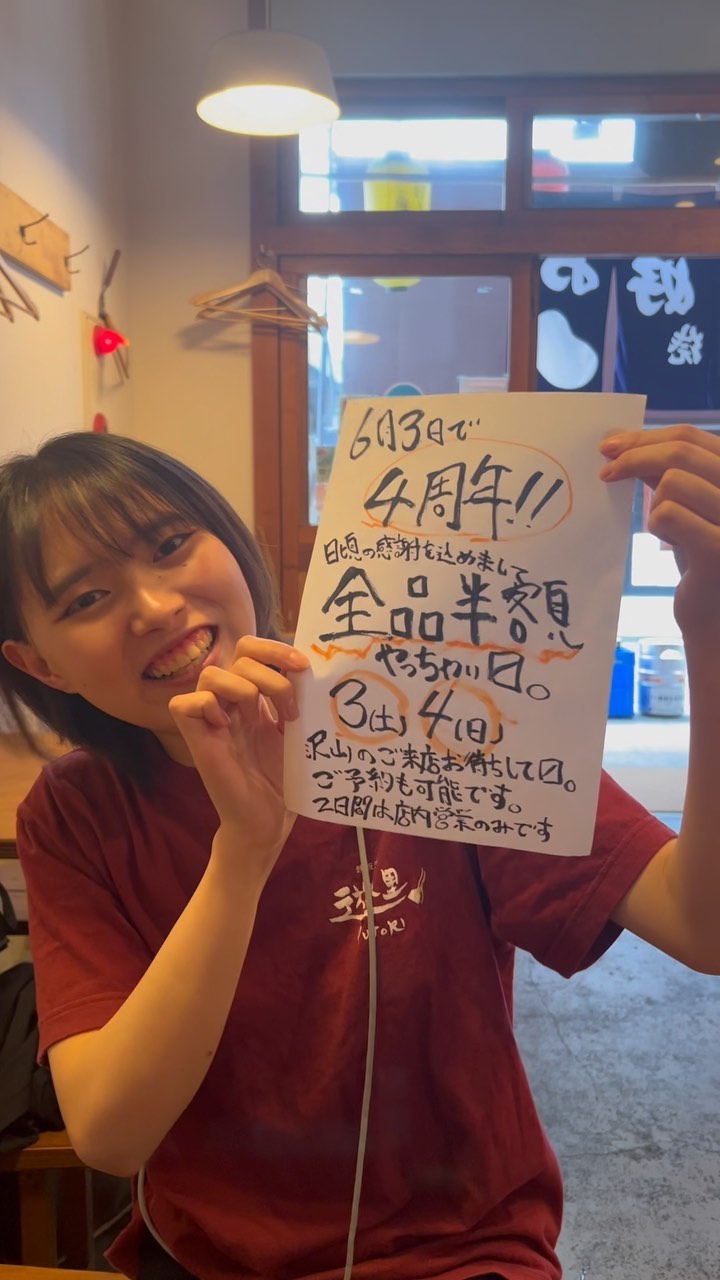 お好
焼
6月3日で
4周年!!
日頃の感謝を込めまして
全品半額
やっちゃい〼。
3(土) 4(日)
沢山のご来店お待ちして〼。
ご予約も可能です。
2日間は店内営業のみです
遊里
YUTORI